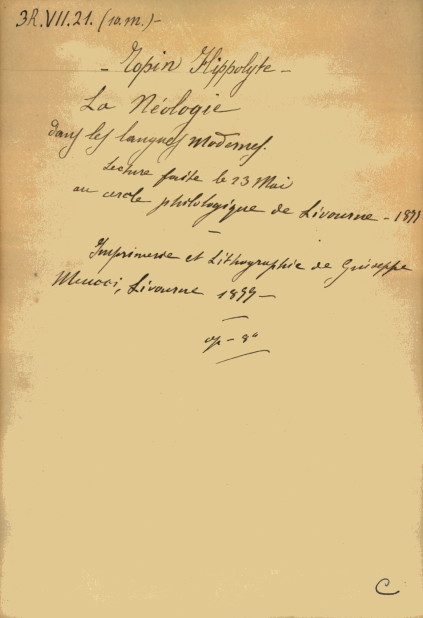 3R.VII.21. (10.m.)-
- Topin Hippolyte -
La Néologie
dans les langues modernes.
Lecture faite le 23 Mai
au cercle philologique de Livourne - 1899
-
Imprimerie et Lithographie de Giuseppe
Meucci, Livourne 1899 -
-
op - 8°
C